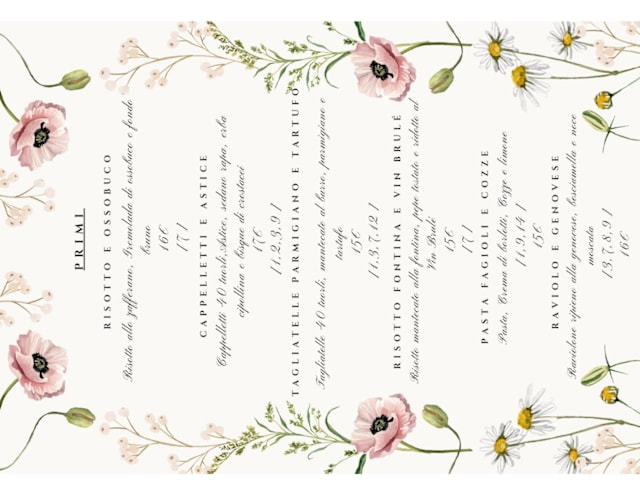 PRIMI
RISOTTO E OSSOBUCO
Risotto allo zafferano, Gremolada di ossobuco e fondo
bruno
16€
17 1
CAPPELLETTI E ASTICE
Cappelletti 40 tuorli, Astice, sedano rapa, erba
cipollina e bisque di crostacei
17€
11,2,3,9 1
TAGLIATELLE PARMIGIANO E TARTUFO
Tagliatelle 40 tuorli, mantecate al burro, parmigiano e
tartufo
15€
11,3,7,12 1
RISOTTO FONTINA E VIN BRULÉ
Risotto mantecato alla fontina, pepe tostato e ridotto al
Vin Brulé
15€
17 1
PASTA FAGIOLI E COZZE
Pasta, Crema di borlotti, Cozze e limone
11,9,14 1
15€
RAVIOLO E GENOVESE
Raviolone ripieno alla genovese, besciamella e noce
moscata
13,7,8,9 1
16€